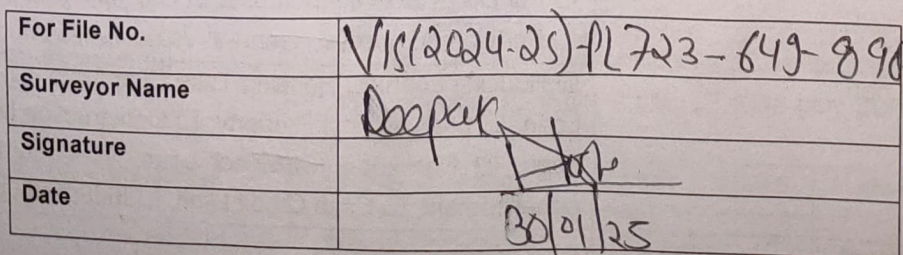 For File No. VIS(2024-25)-PL723-649-890
Surveyor Name Deepak
Signature
Date 30/01/25